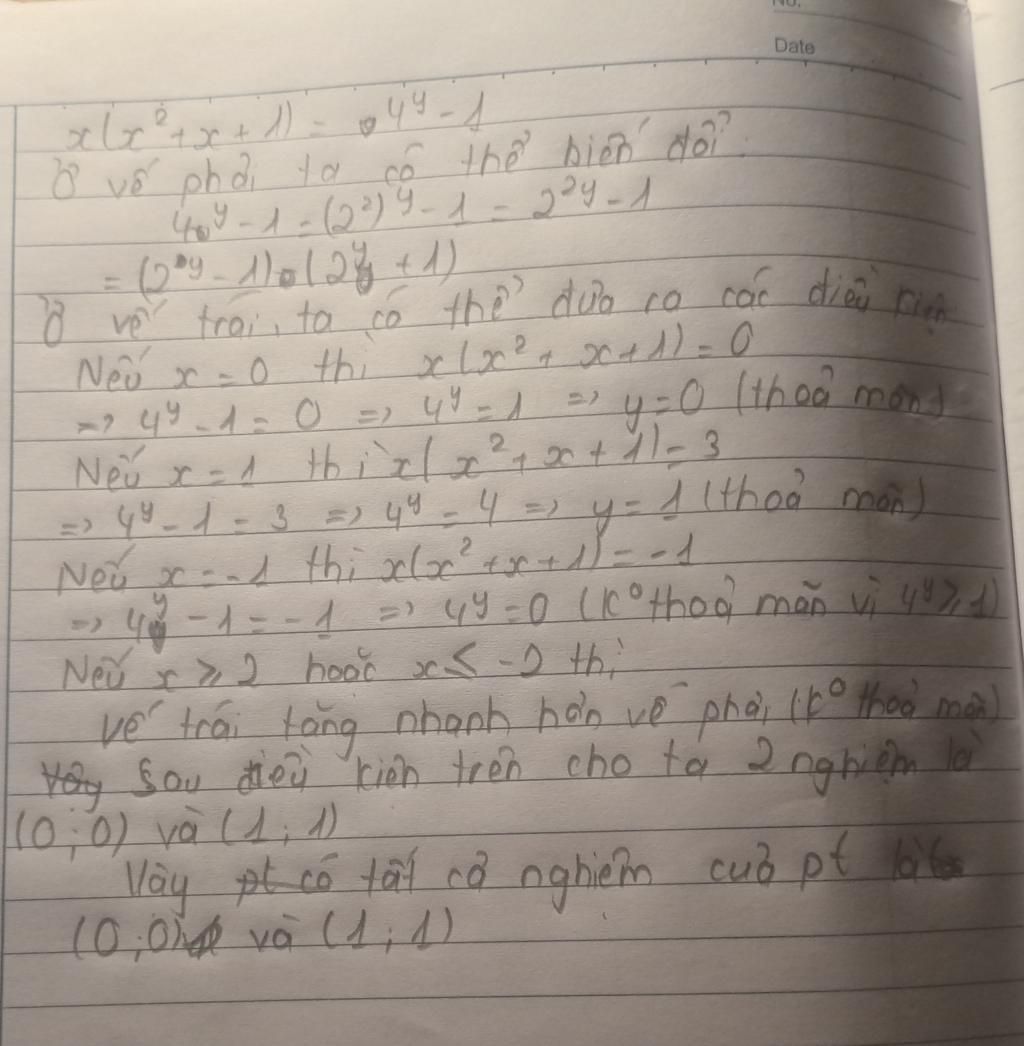 No.
Date
x(x²+x+1) = 4^y - 1
Ở vế phải ta có thể biến đổi:
4^y - 1 = (2²)^y - 1 = 2^2y - 1
= (2^y - 1).(2^y + 1)
Ở vế trái, ta có thể đưa ra các điều kiện
Nếu x = 0 thì x(x² + x + 1) = 0
=> 4^y - 1 = 0 => 4^y = 1 => y = 0 (thoả mãn)
Nếu x = 1 thì x(x² + x + 1) = 3
=> 4^y - 1 = 3 => 4^y = 4 => y = 1 (thoả mãn)
Nếu x = -1 thì x(x² + x + 1) = -1
=> 4^y - 1 = -1 => 4^y = 0 (k° thoả mãn vì 4^y ⩾ 1)
Nếu x ⩾ 2 hoặc x ⩽ -2 thì
vế trái tăng nhanh hơn vế phải (k° thoả mãn)
Sau điều kiện trên cho ta 2 nghiệm là
(0;0) và (1;1)
Vậy tất cả nghiệm của pt là
(0;0) và (1;1)